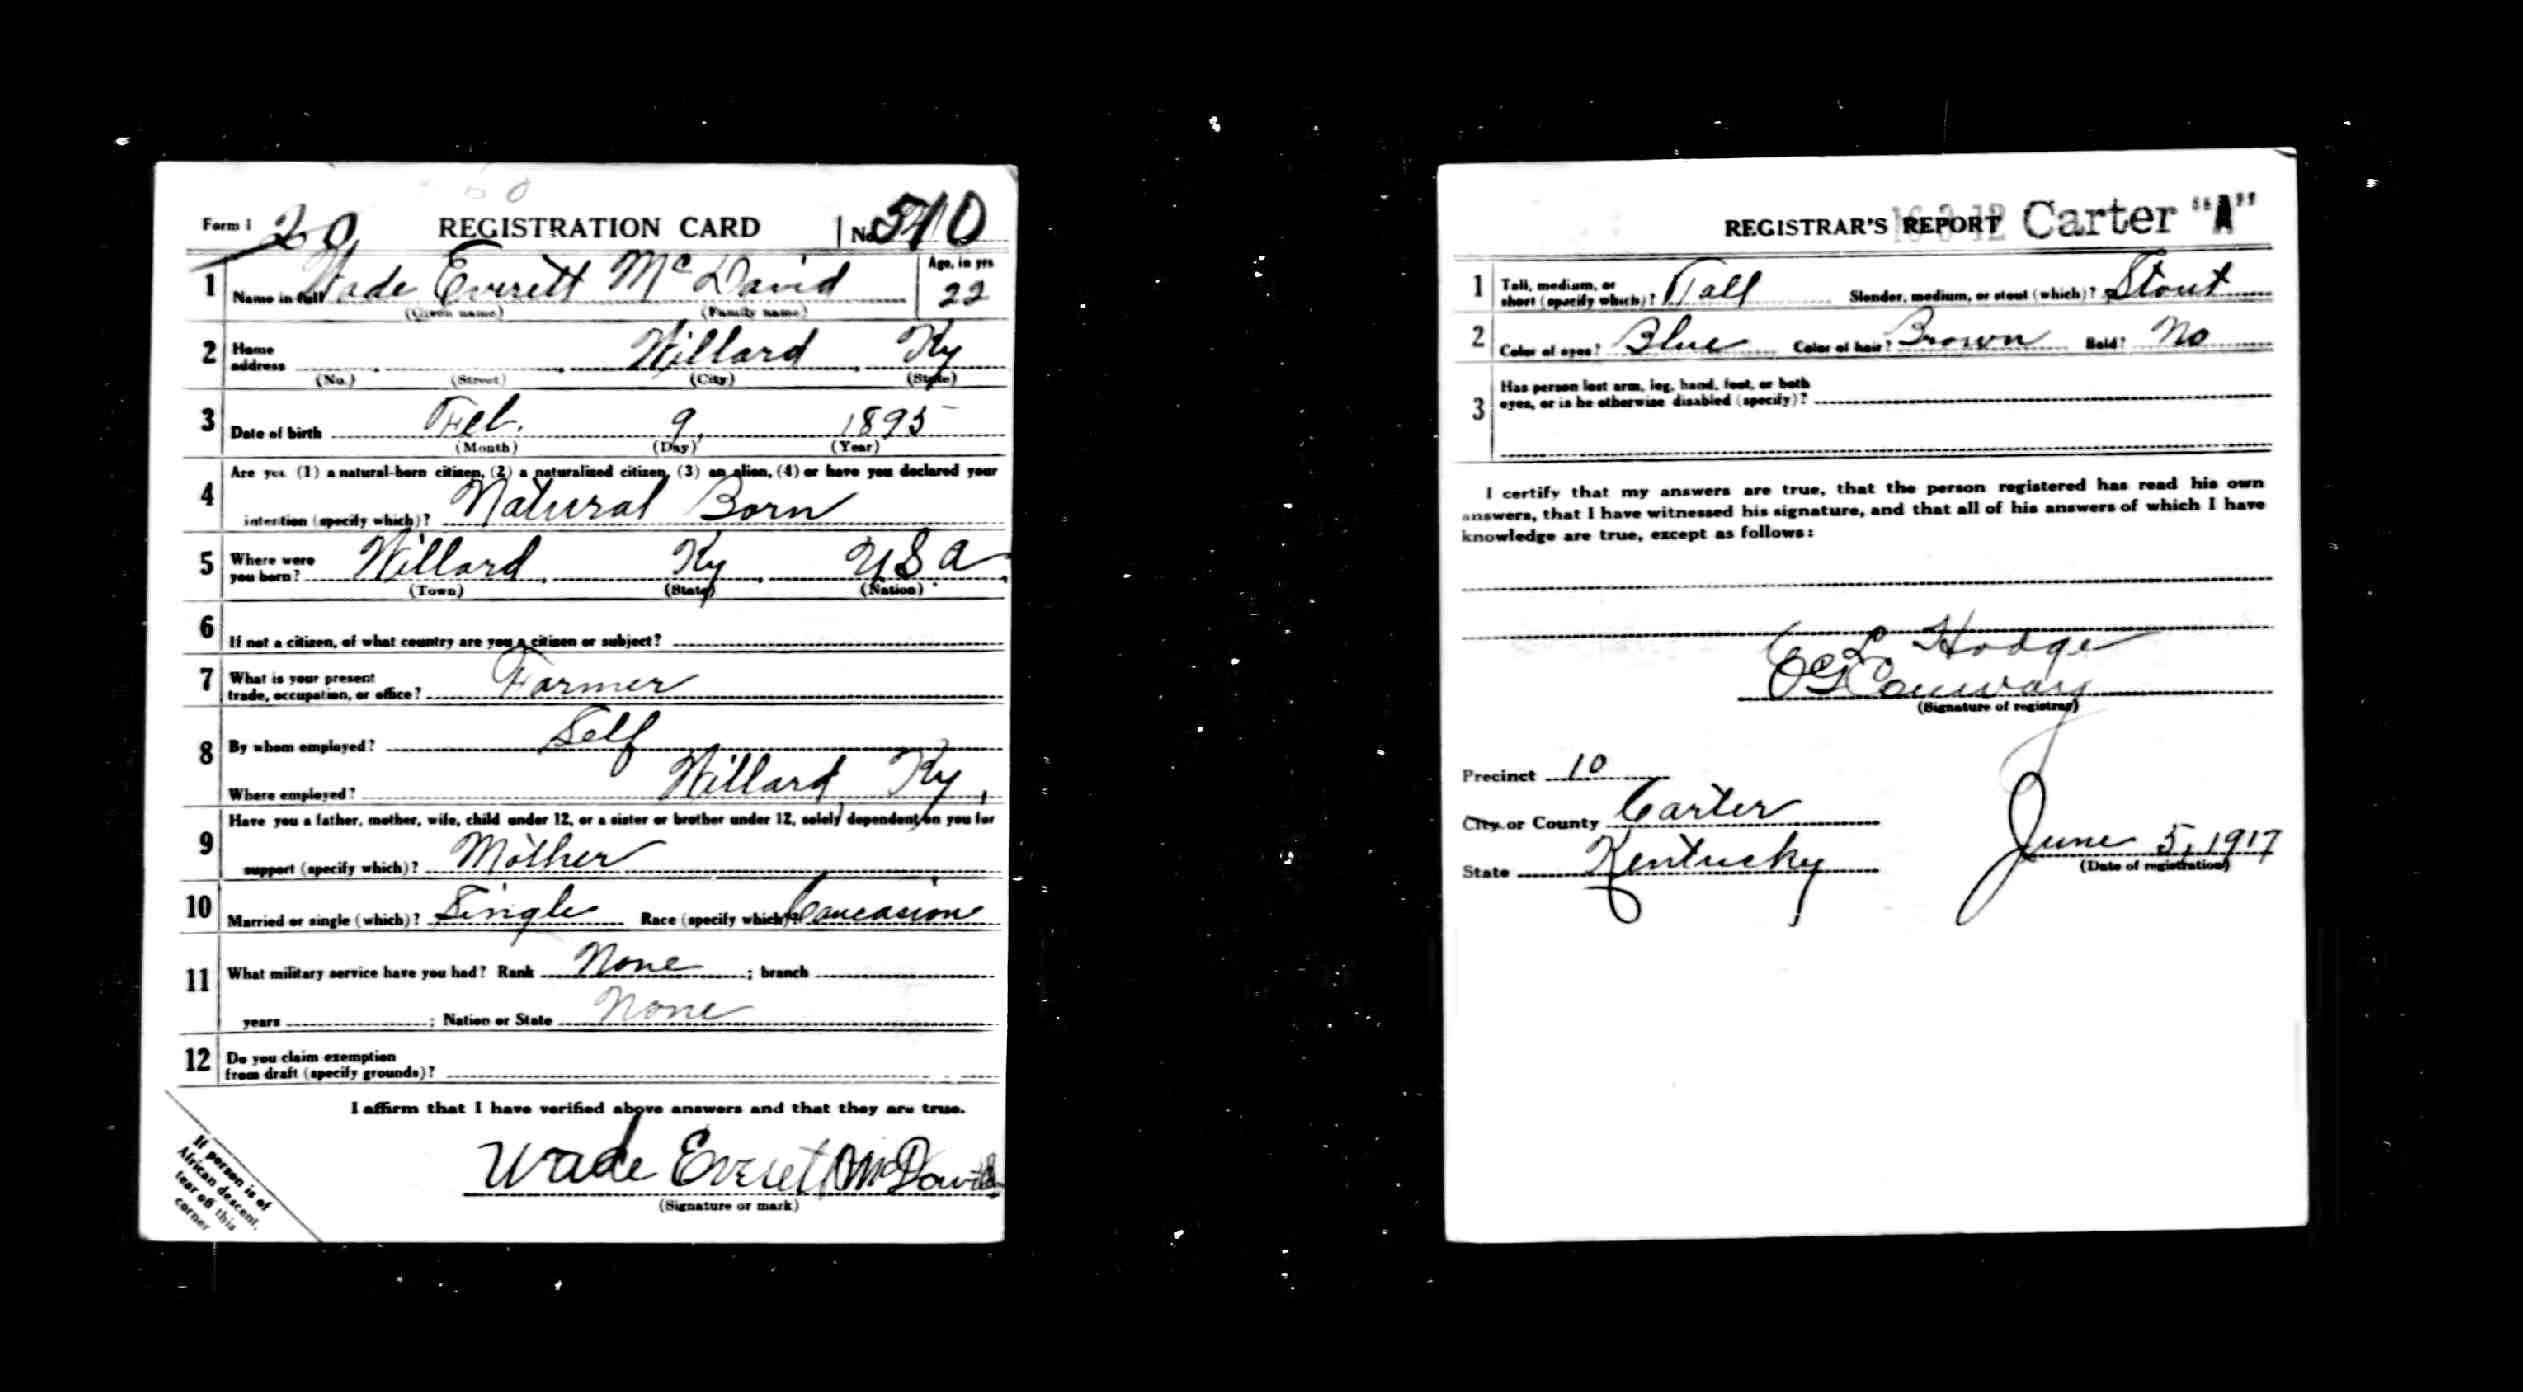 Form 1 20 REGISTRATION CARD No. 510
1 Name in full Wade Everett McDavid Age, in yrs 22
(Given name) (Family name)
2 Home address Willard Ky
(No.) (Street) (City) (State)
3 Date of birth Feb. 9, 1895
(Month) (Day) (Year)
4 Are you (1) a natural-born citizen, (2) a naturalized citizen, (3) an alien, (4) or have you declared your
intention (specify which)? Natural Born
5 Where were you born? Willard Ky USA
(Town) (State) (Nation)
6 If not a citizen, of what country are you a citizen or subject?
7 What is your present
trade, occupation, or office? Farmer
8 By whom employed? Self
Where employed? Willard, Ky,
9 Have you a father, mother, wife, child under 12, or a sister or brother under 12, solely dependent on you for
support (specify which)? Mother
10 Married or single (which)? Single Race (specify which)? Caucasion
11 What military service have you had? Rank None ; branch
years ; Nation or State None
12 Do you claim exemption
from draft (specify grounds)?
I affirm that I have verified above answers and that they are true.
Wade Everett McDavid
(Signature or mark)
If person is of
African descent,
tear off this
corner
REGISTRAR'S REPORT Carter "A"
1 Tall, medium, or
short (specify which)? Tall Slender, medium, or stout (which)? Stout
2 Color of eyes? Blue Color of hair? Brown Bald? No
3 Has person lost arm, leg, hand, foot, or both
eyes, or is he otherwise disabled (specify)?
I certify that my answers are true, that the person registered has read his own
answers, that I have witnessed his signature, and that all of his answers of which I have
knowledge are true, except as follows:
L Hodge
Conway
(Signature of registrar)
Precinct 10
City or County Carter
State Kentucky
June 5, 1917
(Date of registration)